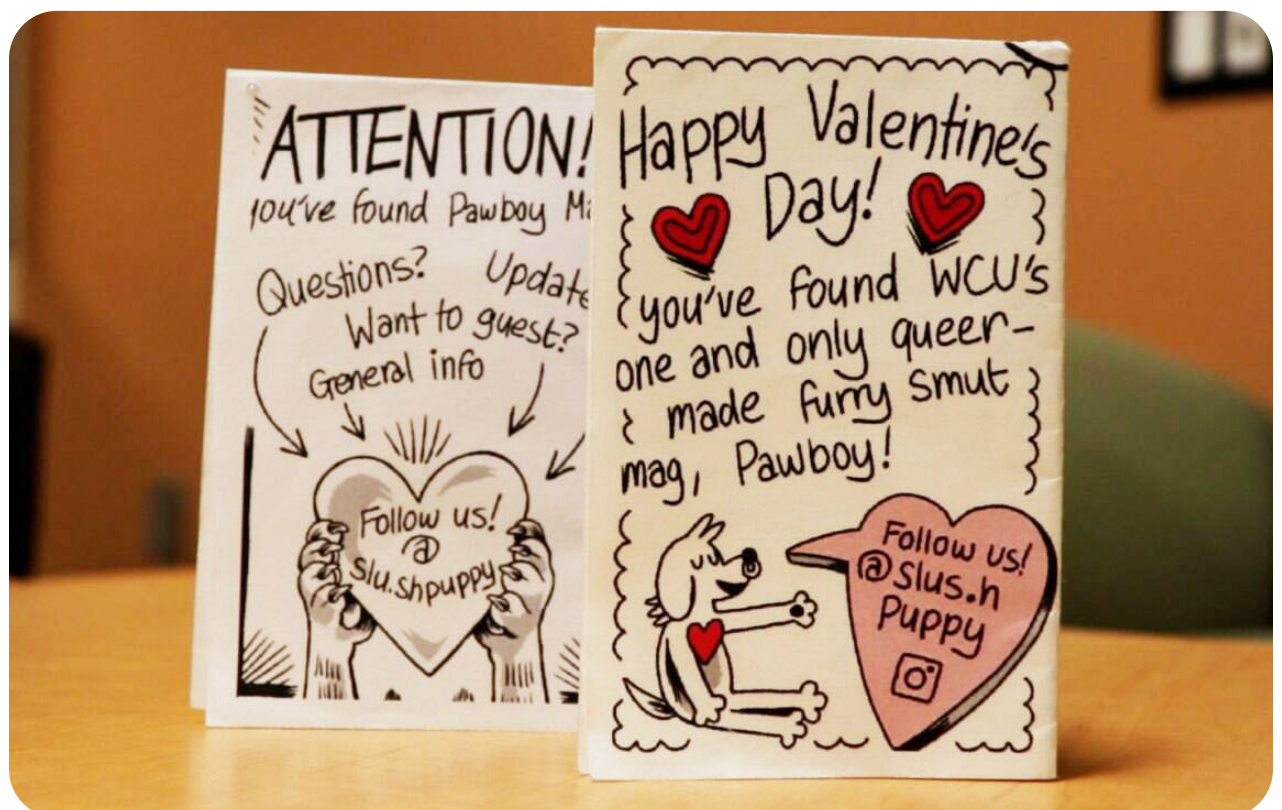 ATTENTION!
you've found Pawboy
Questions?
Update
Want to guest?
General info
Follow us!
@
slu.shpuppy
Happy Valentine's
Day!
you've found WCU's
one and only queer-
made furry smut
mag, Pawboy!
Follow us!
@slus.h
Puppy